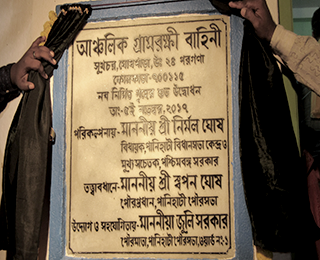 আঞ্চলিক গ্রামরক্ষী বাহিনী
সুখচর, ঘোষপাড়া, উঃ ২৪ পরগণা
কোলকাতা-৭০০১১৫
নব নির্মিত গৃহের শুভ উদ্বোধন
তাং-৫ই নভেম্বর, ২০১৭
পরিকল্পনায়- মাননীয় শ্রী নির্মল ঘোষ
বিধায়ক, পানিহাটী বিধানসভা কেন্দ্র ও
মুখ্যসচেতক, পশ্চিমবঙ্গ সরকার
তত্ত্বাবধানে-মাননীয় শ্রী স্বপন ঘোষ
পৌরপ্রধান, পানিহাটী পৌরসভা
উদ্যোগ ও সহযোগিতায়- মাননীয়া জুলি সরকার
পৌরমাতা, পানিহাটী পৌরসভা, ওয়ার্ড নং-১